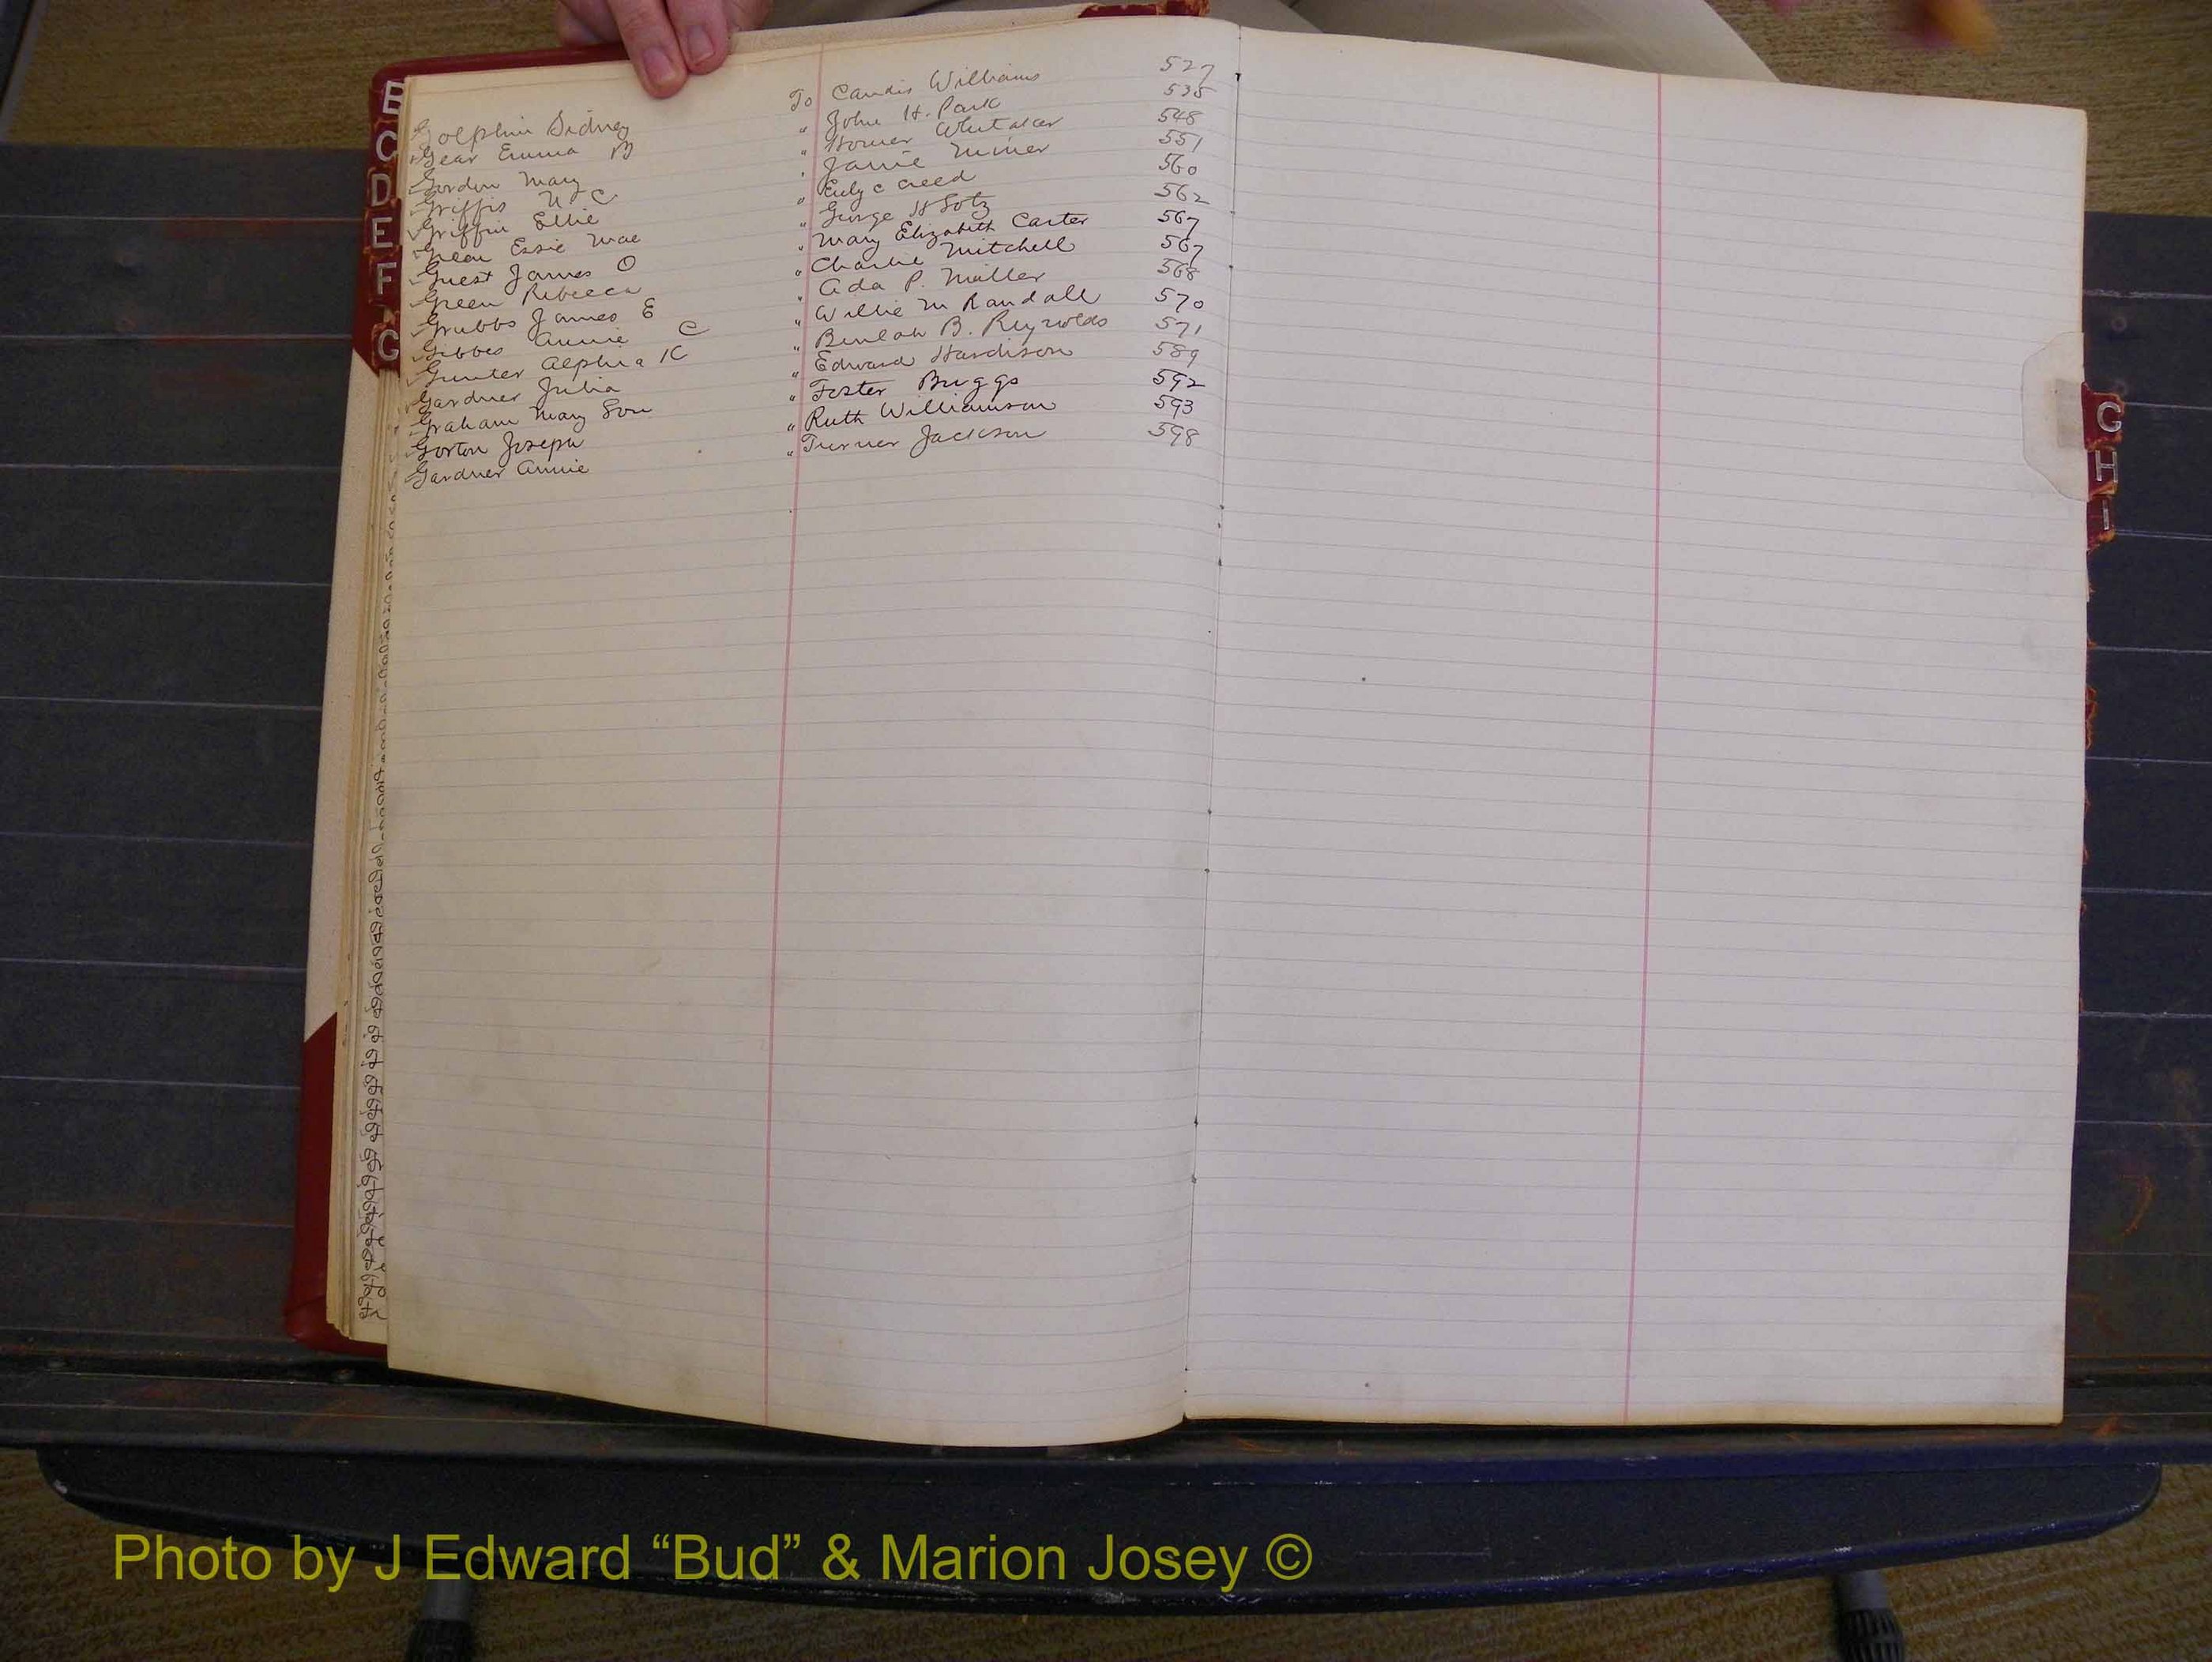 B
C
D
E
F
G
Golphin Sidney To Candis Williams 527
Gear Emma B " John H. Park 535
Gordon Mary " Homer Whitaker 548
Griffis W C " Janie Miner 551
Griffin Ellie " Creed 560
Green Essie Mae " George H Lotz 562
Guest James O " Mary Elizabeth Carter 567
Green Rebecca " Charlie Mitchell 567
Grubbs James E " Ada P. Muller 568
Gibbes Annie C " Willie M Randall 570
Gunter Alphia K " Beulah B. Reynolds 571
Gardner Julia " Edward Hardison 589
Graham Mary Lou " Foster Buggs 592
Gorton Joseph " Ruth Williamson 593
Gardner Annie " Turner Jackson 598
G
H
I
Photo by J Edward “Bud” & Marion Josey ©